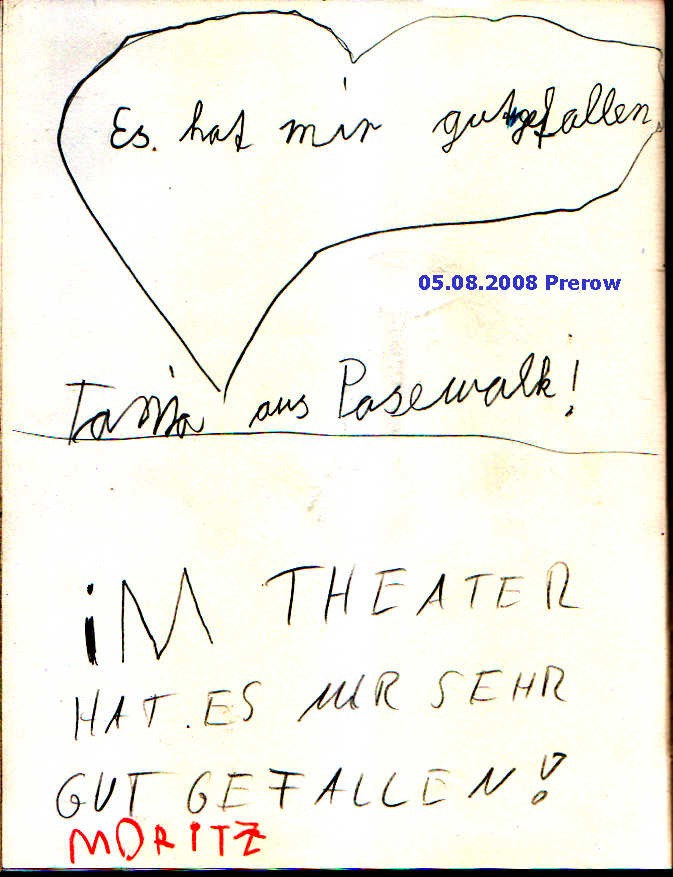 Es. hat mir gut gefallen.
05.08.2008 Prerow
Tanja aus Pasewalk!
iM THEATER
HAT.ES MIR SEHR
GUT GEFALLEN!
MORITZ